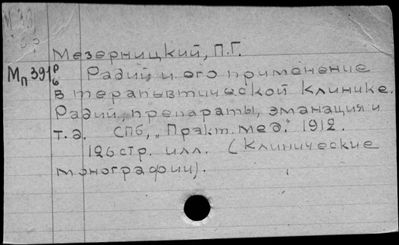 Мезерницкий, П.Г.
Мп391 р/б Радий и его применение
в терапевтической клинике.
Радий, препараты, эманация и
т.д. СПб, „Практ. мед." 1912.
126 стр. илл. (Клинические
монографии).